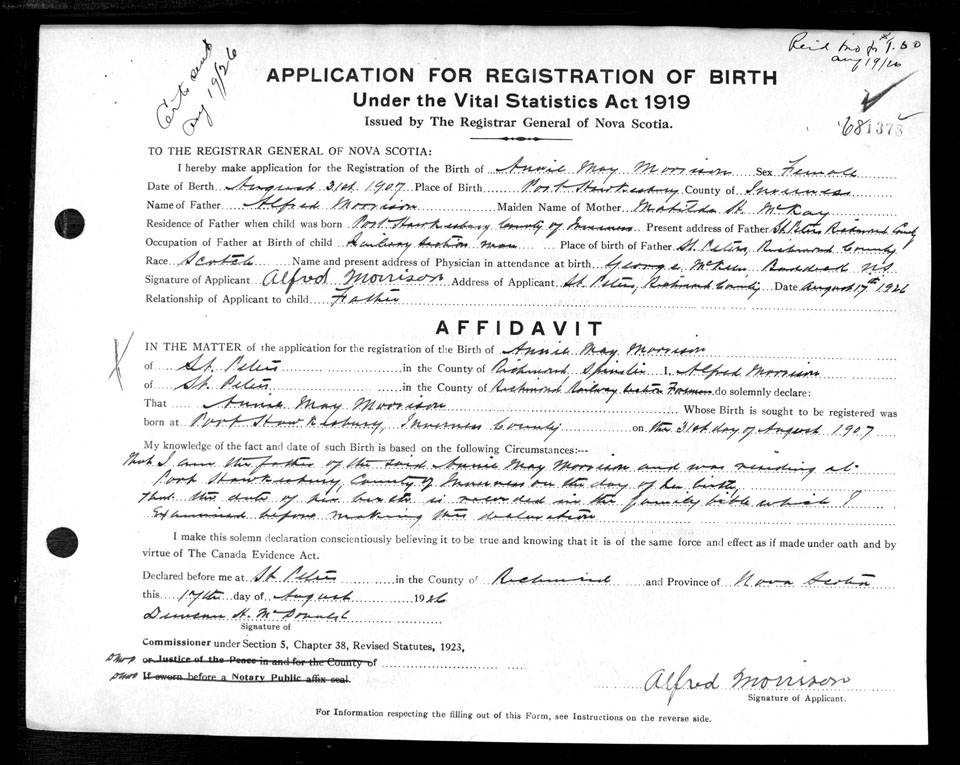 Cert sent
Aug 19/26
Rec'd mo $1.50
Aug 19/26
APPLICATION FOR REGISTRATION OF BIRTH
Under the Vital Statistics Act 1919
Issued by The Registrar General of Nova Scotia.
681378
TO THE REGISTRAR GENERAL OF NOVA SCOTIA:
I hereby make application for the Registration of the Birth of Annie May Morrison Sex Female
Date of Birth August 31st 1907 Place of Birth Port Hawkesbury County of Inverness
Name of Father Alfred Morrison Maiden Name of Mother Matilda H. McKay
Residence of Father when child was born Port Hawkesbury County of Inverness Present address of Father St. Peters Richmond County
Occupation of Father at Birth of child Railway section man Place of birth of Father St. Peters, Richmond County
Race Scotch Name and present address of Physician in attendance at birth George Baddeck NS
Signature of Applicant Alfred Morrison Address of Applicant St. Peters, Richmond County Date August 17th 1926
Relationship of Applicant to child Father
AFFIDAVIT
IN THE MATTER of the application for the registration of the Birth of Annie May Morrison
of St. Peters in the County of Richmond Spinster I, Alfred Morrison
of St. Peters in the County of Richmond Railway Section Foreman do solemnly declare:
That Annie May Morrison Whose Birth is sought to be registered was
born at Port Hawkesbury, Inverness County on the 31st day of August 1907
My knowledge of the fact and date of such Birth is based on the following Circumstances:--
that I am the father of the said Annie May Morrison and was residing at
Port Hawkesbury County of Inverness on the day of her birth,
that the date of her birth is recorded in the family bible which I
examined before making this declaration
I make this solemn declaration conscientiously believing it to be true and knowing that it is of the same force and effect as if made under oath and by
virtue of The Canada Evidence Act.
Declared before me at St. Peters in the County of Richmond and Province of Nova Scotia
this 17th day of August 1926
Duncan H. McDonald
Signature of
Commissioner under Section 5, Chapter 38, Revised Statutes, 1923,
or Justice of the Peace in and for the County of
If sworn before a Notary Public affix seal.
Alfred Morrison
Signature of Applicant.
For Information respecting the filling out of this Form, see Instructions on the reverse side.